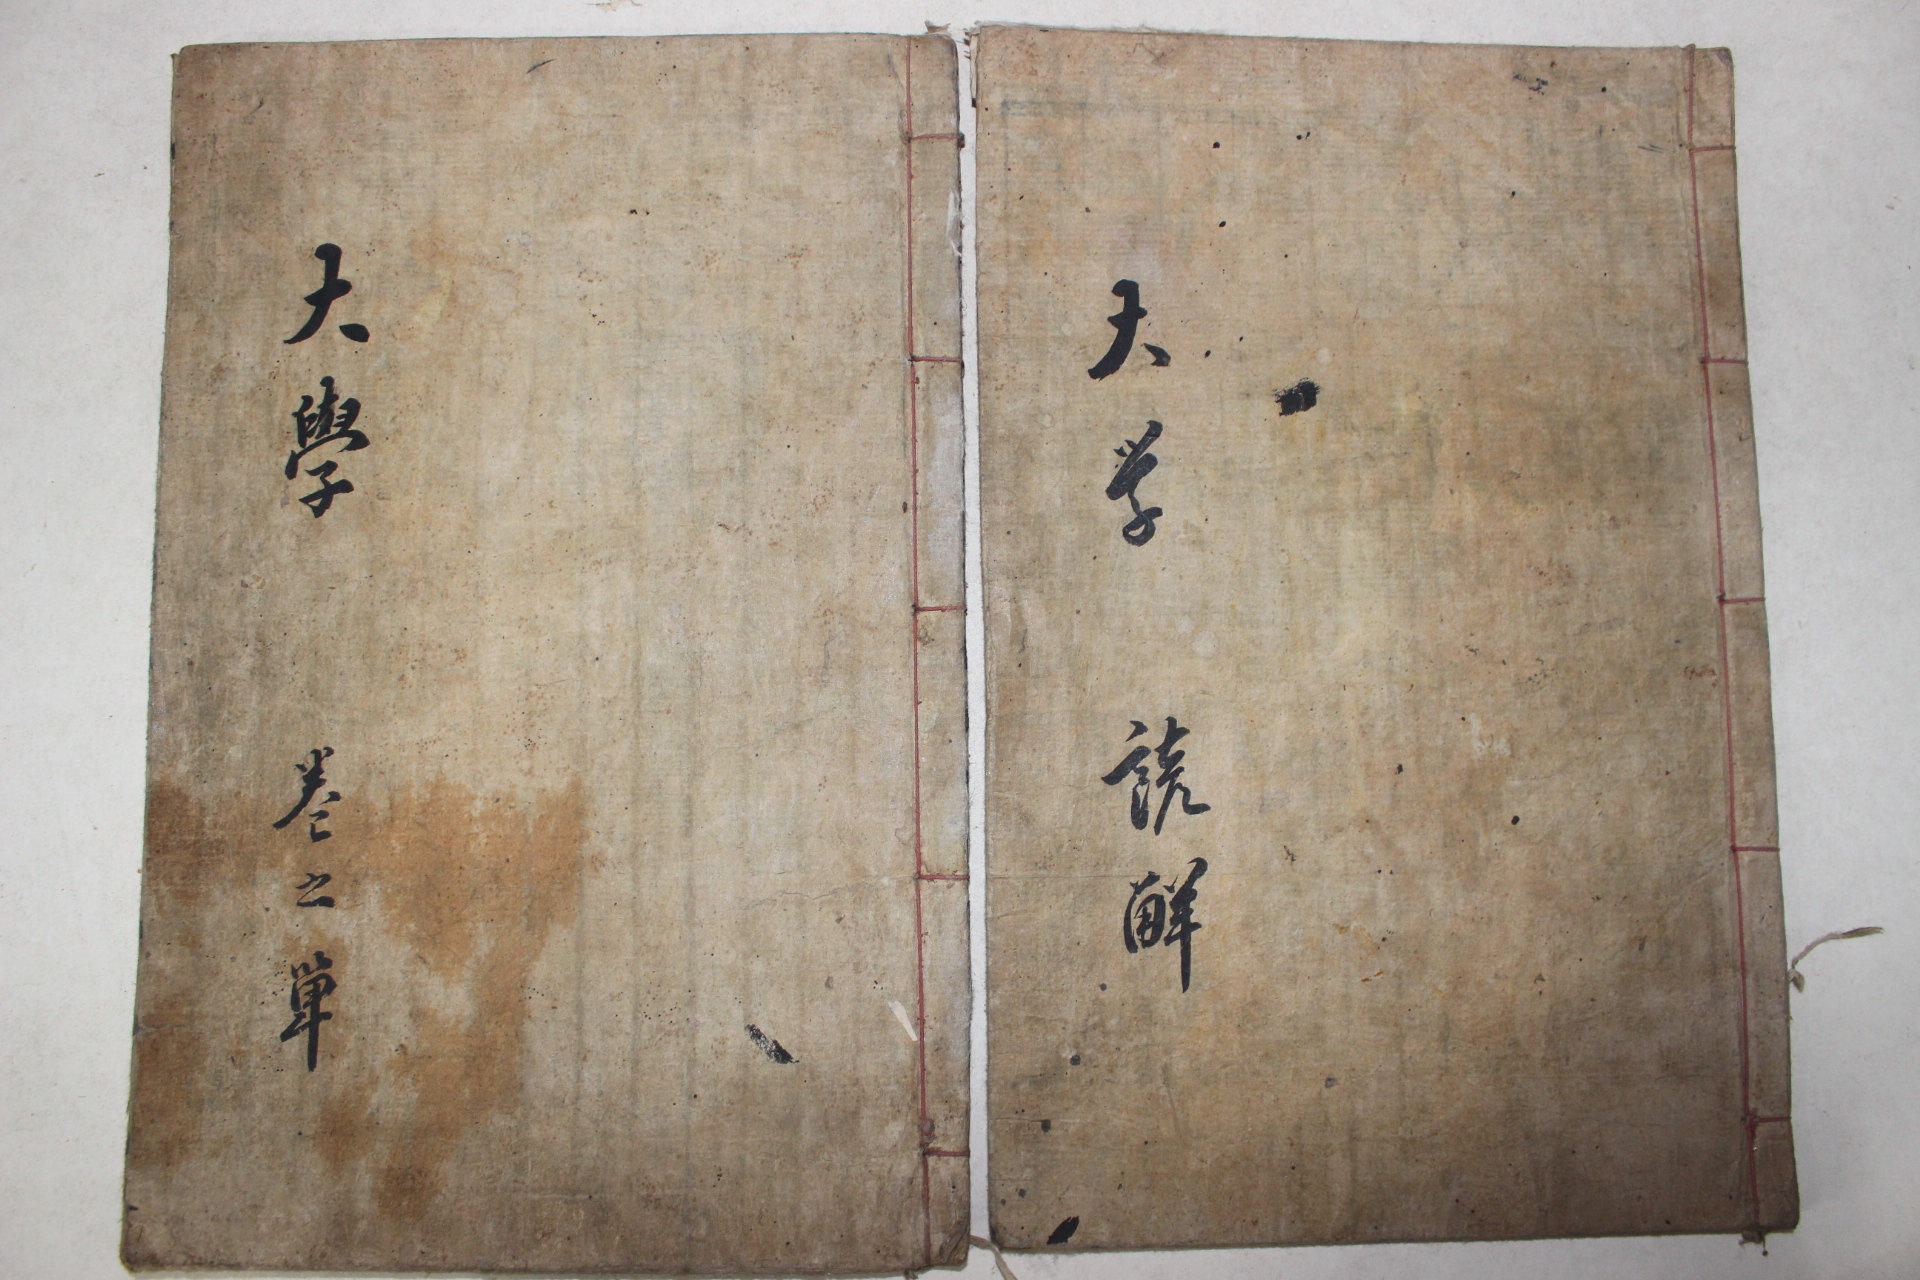 大学 諺解
大學 卷之單